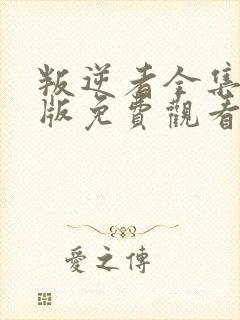 叛逆者全集
版免費觀看
愛之傳